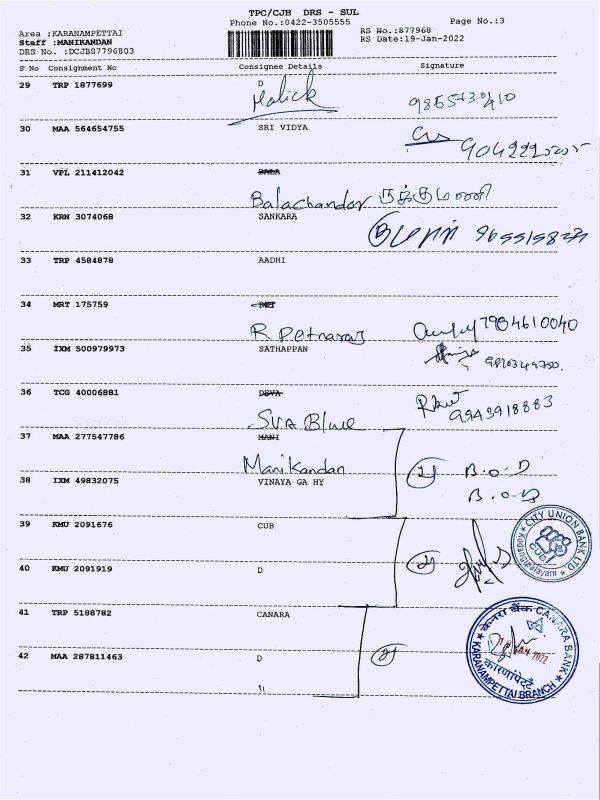 TPC/CJB DRS - SUL
Phone No.:0422-3505555 Page No.:3
Area :KARANAMPETTAI RS No.:877968
Staff :MANIKANDAN RS Date:19-Jan-2022
DRS No. :DCJB87796803
S' No Consignment No Consignee Details Signature
29 TRP 1877699 D
Malick
30 MAA 564654755 SRI VIDYA
31 VPL 211412042 BALA
Balachandor ருக்குமணி
32 KRN 3074068 SANKARA
33 TRP 4584878 AADHI
34 MRT 175759
R. Petnaraj 7904610040
35 IXM 500979973 SATHAPPAN
36 TCG 40006881 DEVA
9943918883
Sua Blue
37 MAA 277547786 MANI
Manikandan B.O.D
38 IXM 49832075 VINAYA GA HY
B.O.D
39 KMU 2091676 CUB
CITY UNION BANK LTD
CUB
Kodangipalayam
40 KMU 2091919 D
41 TRP 5188782 CANARA
केनरा बैंक CANARA BANK
KARANAMPETTAI BRANCH
42 MAA 287811463 D